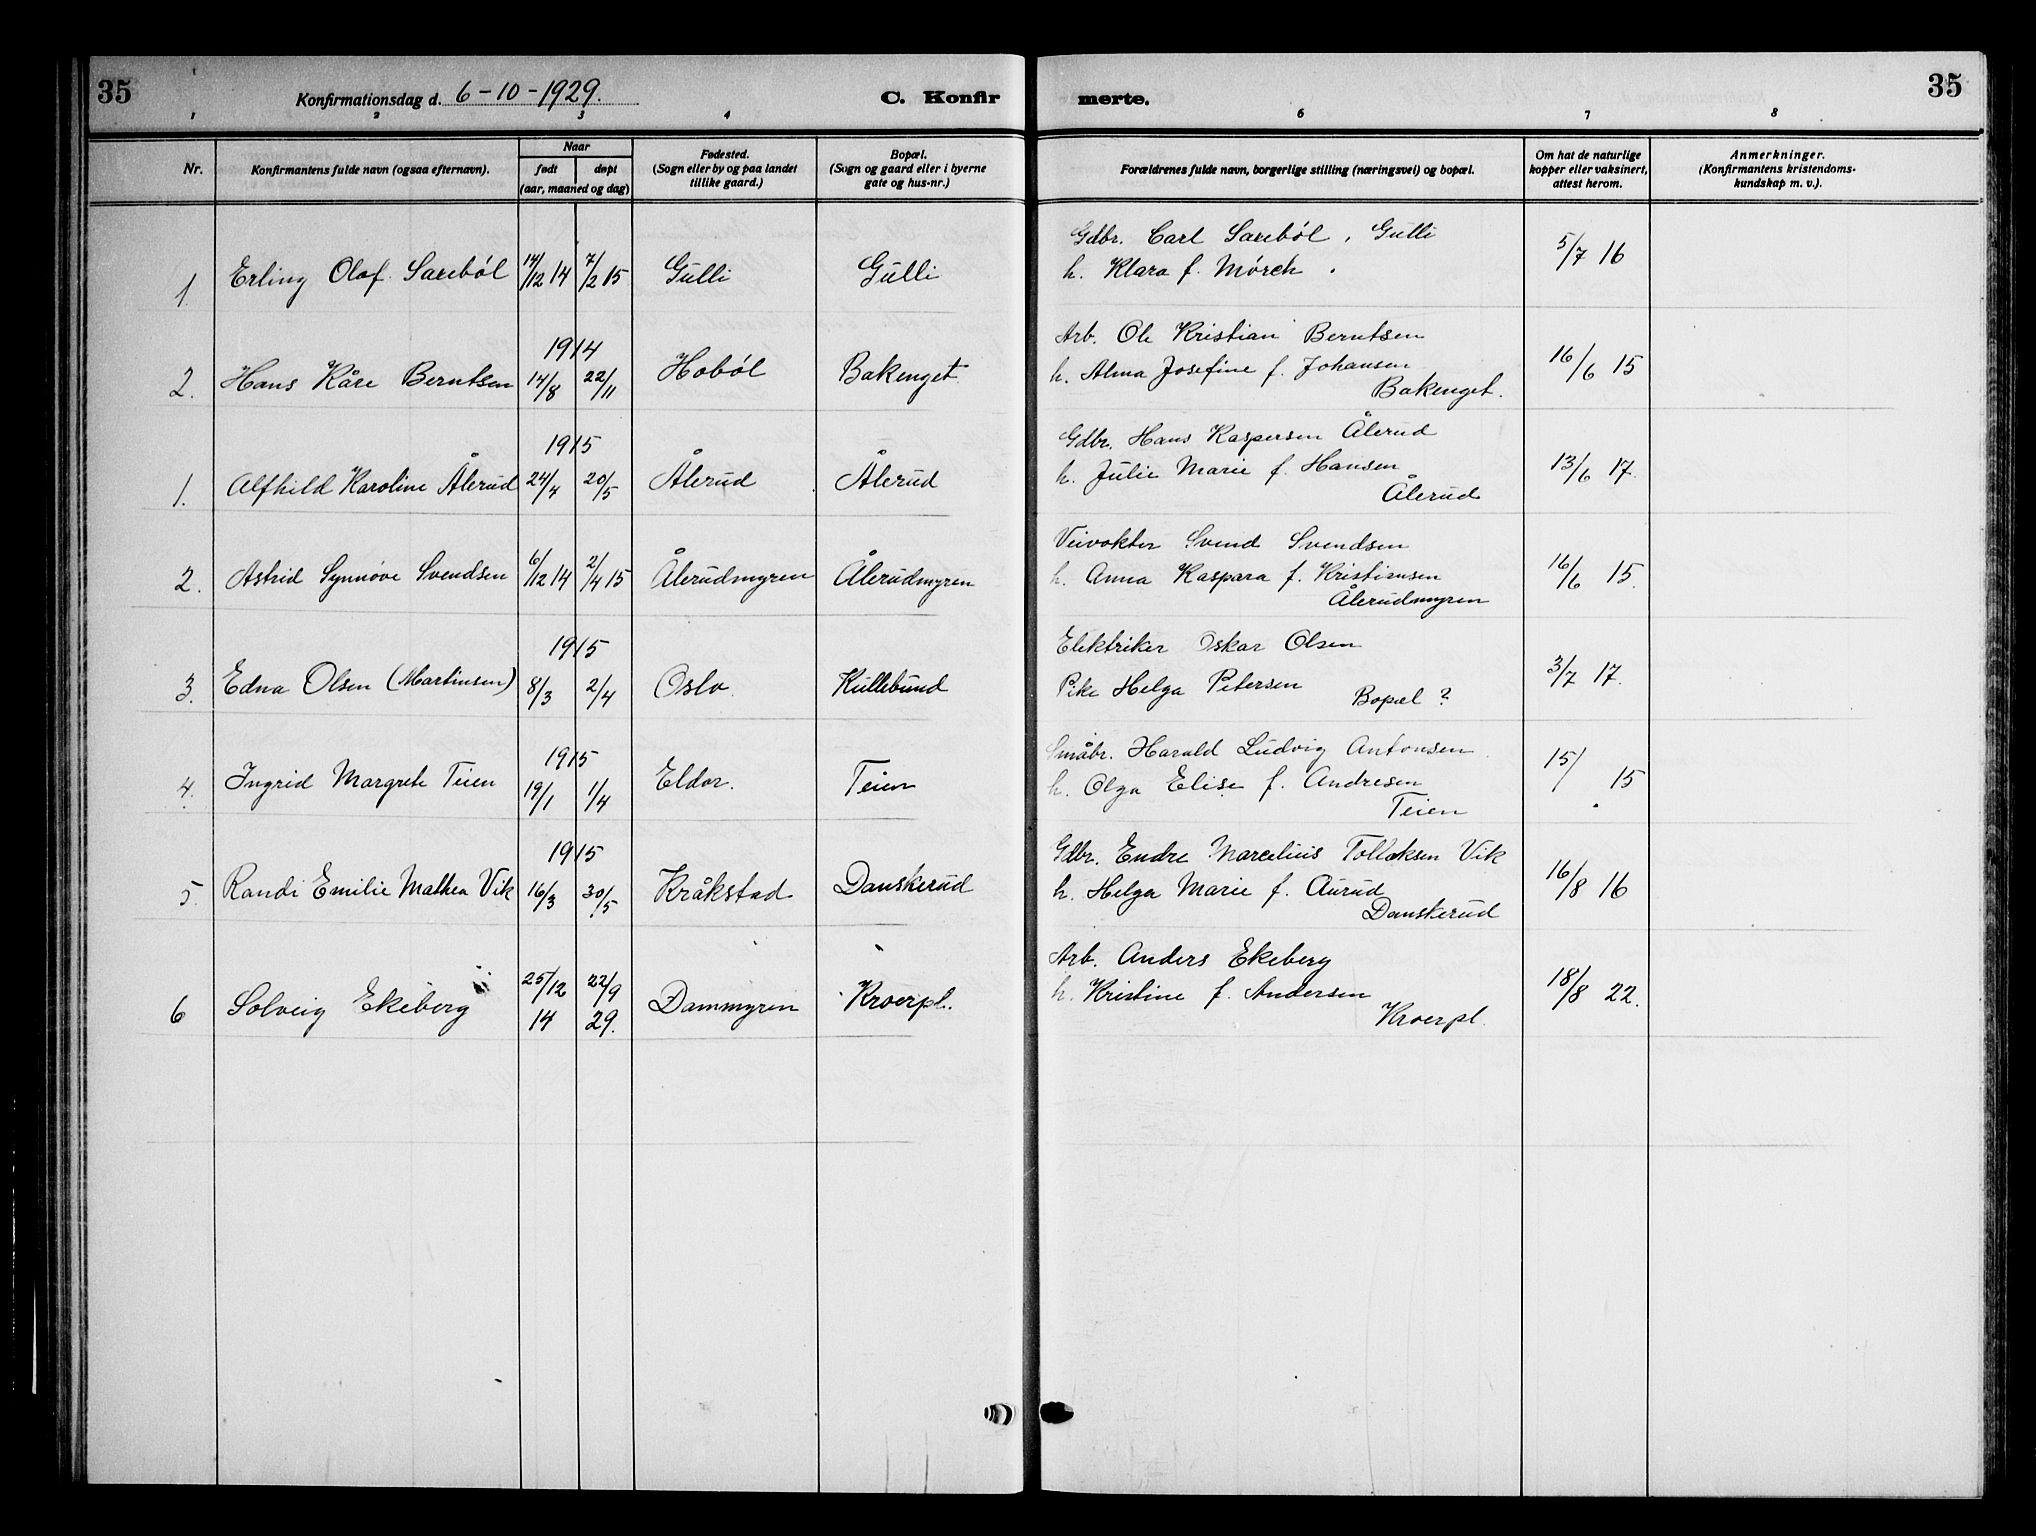 35
Konfirmationsdag d. 6-10-1929.
C. Konfir
merte.
35
1 2 3 4 6 7 8
Nr.
Konfirmantens fulde navn (ogsaa efternavn).
Naar
født døpt
(aar, maaned og dag)
Fødested.
(Sogn eller by og paa landet
tillike gaard.)
Bopæl.
(Sogn og gaard eller i byerne
gate og hus-nr.)
Forældrenes fulde navn, borgerlige stilling (næringsvei) og bopæl.
Om hat de naturlige
kopper eller vaksinert,
attest herom.
Anmerkninger.
(Konfirmantens kristendoms-
kundskap m. v.).
1. Erling Olaf Sarebøl 14/12 14 7/2 15 Gulli Gulli
Gdbr. Carl Sarebøl, Gulli
h. Klara f. Mørch.
5/7 16
1914
2. Hans Kåre Berntsen 14/8 22/11 Hobøl Bakenget
Arb. Ole Kristian Berntsen
h. Alma Josefine f. Johansen
Bakenget.
16/6 15
1915
1. Alfhild Karoline Ålerud 24/4 20/5 Ålerud Ålerud
Gdbr. Hans Kaspersen Ålerud
h. Julie Marie f. Hansen
Ålerud
13/6 17.
2. Astrid Synnøve Svendsen 6/12 14 2/4 15 Ålerudmyren Ålerudmyren
Veivokter Svend Svendsen
h. Anna Kaspara f. Kristiansen
Ålerudmyren
16/6 15.
1915
3. Edna Olsen (Martinsen) 8/3 2/4 Oslo. Kullebund
Elektriker Oskar Olsen
Pike Helga Petersen
Bopæl ?
3/7 17.
1915
4. Ingrid Margrete Teien 19/1 1/4 Eldor. Teien
Småbr. Harald Ludvig Antonsen
h. Olga Elise f. Andresen
Teien
15/ 15
1915
5. Randi Emilie Mathea Vik 16/3 30/5 Kråkstad Danskerud
Gdbr. Endre Marcelius Tollaksen Vik
h. Helga Marie f. Aurud
Danskerud
16/8 16
6 Solveig Ekeberg 25/12 14 22/9 29. Dammyren Kroerpl.
Arb. Anders Ekeberg
h. Kristine f. Andersen
Kroerpl.
18/8 22.